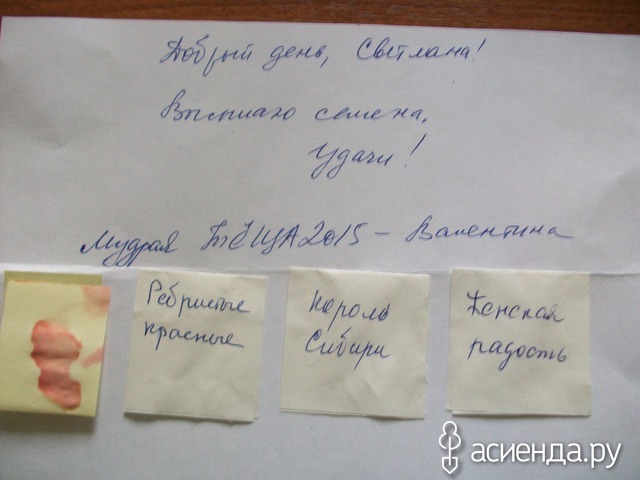 Добрый день, Светлана!
Высылаю семена.
Удачи!
Мудрая ТЁЩА2015 - Валентина
Ребристые
красные
Король
Сибири
Женская
радость
асиенда.ру